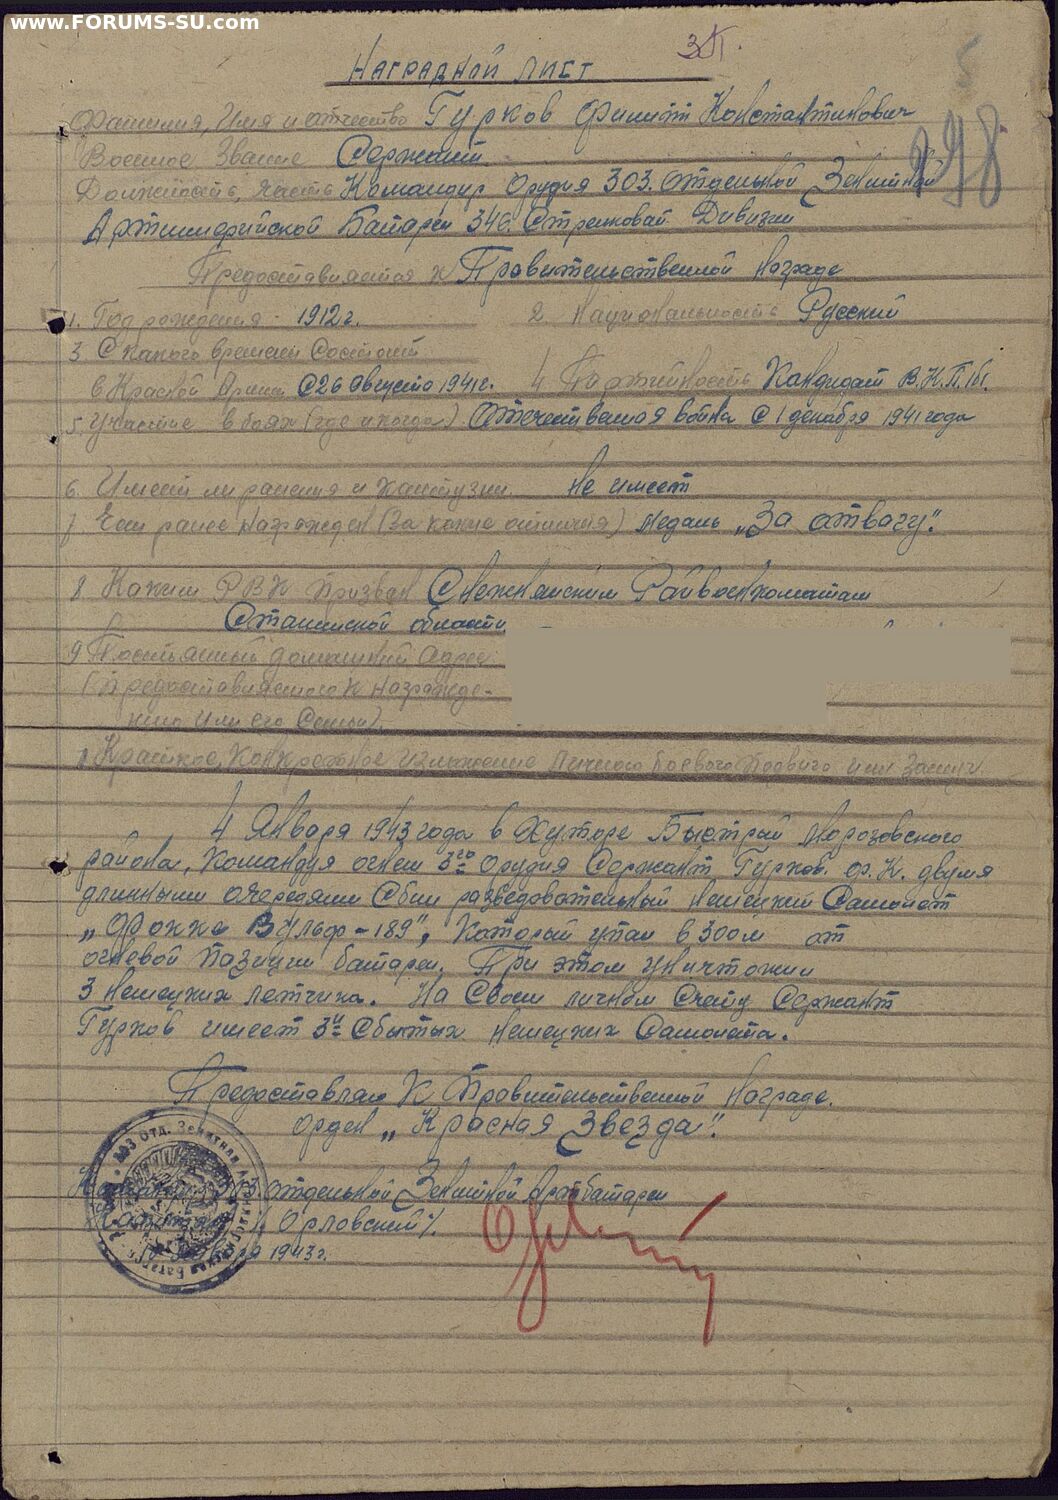 www.FORUMS-SU.com
ЗП.
5
НАГРАДНОЙ ЛИСТ
198
Фамилия, Имя и отчество Гурков Филипп Константинович
Военное Звание Сержант
Должность, часть Командир Орудия 303. Отдельной Зенитной
Артиллерийской Батареи 346. Стрелковой Дивизии
Предоставляется к Правительственной Награде
1. Год рождения 1912 г. 2 Национальность Русский
3 С какого времени Состоит
в Красной Армии С 26 Августа 1941 г. 4 Партийность Кандидат В.К.П./б/.
5. Участие в боях (где и когда) Отечественная война С 1 декабря 1941 года
6. Имеет ли ранения и контузии. Не имеет
7. Чем ранее Награжден (За какие отличия) Медаль „За отвагу".
8 Каким РВК Призван Райвоенкоматом
области
9 Постоянный домашний Адрес
(Предоставляемого к Награжде-
нию или его Семьи).
Краткое, Конкретное Изложение Личного Боевого Подвига или Заслуг.
4 Января 1943 года в Хуторе Быстрый Морозовского
района, Командуя огнем 3го орудия Сержант Гурков. Ф.К. двумя
длинными очередями Сбил разведовательный Немецкий Самолет
„Фокке Вульф-189", Который упал в 300 м от
огневой Позиции батареи. При этом уничтожил
3 Немецких летчика. На Своем личном Счету Сержант
Гурков имеет 3и Сбитых Немецких Самолета.
Предоставляю К Правительственной Награде.
орден „Красная Звезда".
Отдельной Зенитной Артбатареи
/. Орловский /.
1943 г.
303 Отд. Зенитная Артиллерийская Батарея